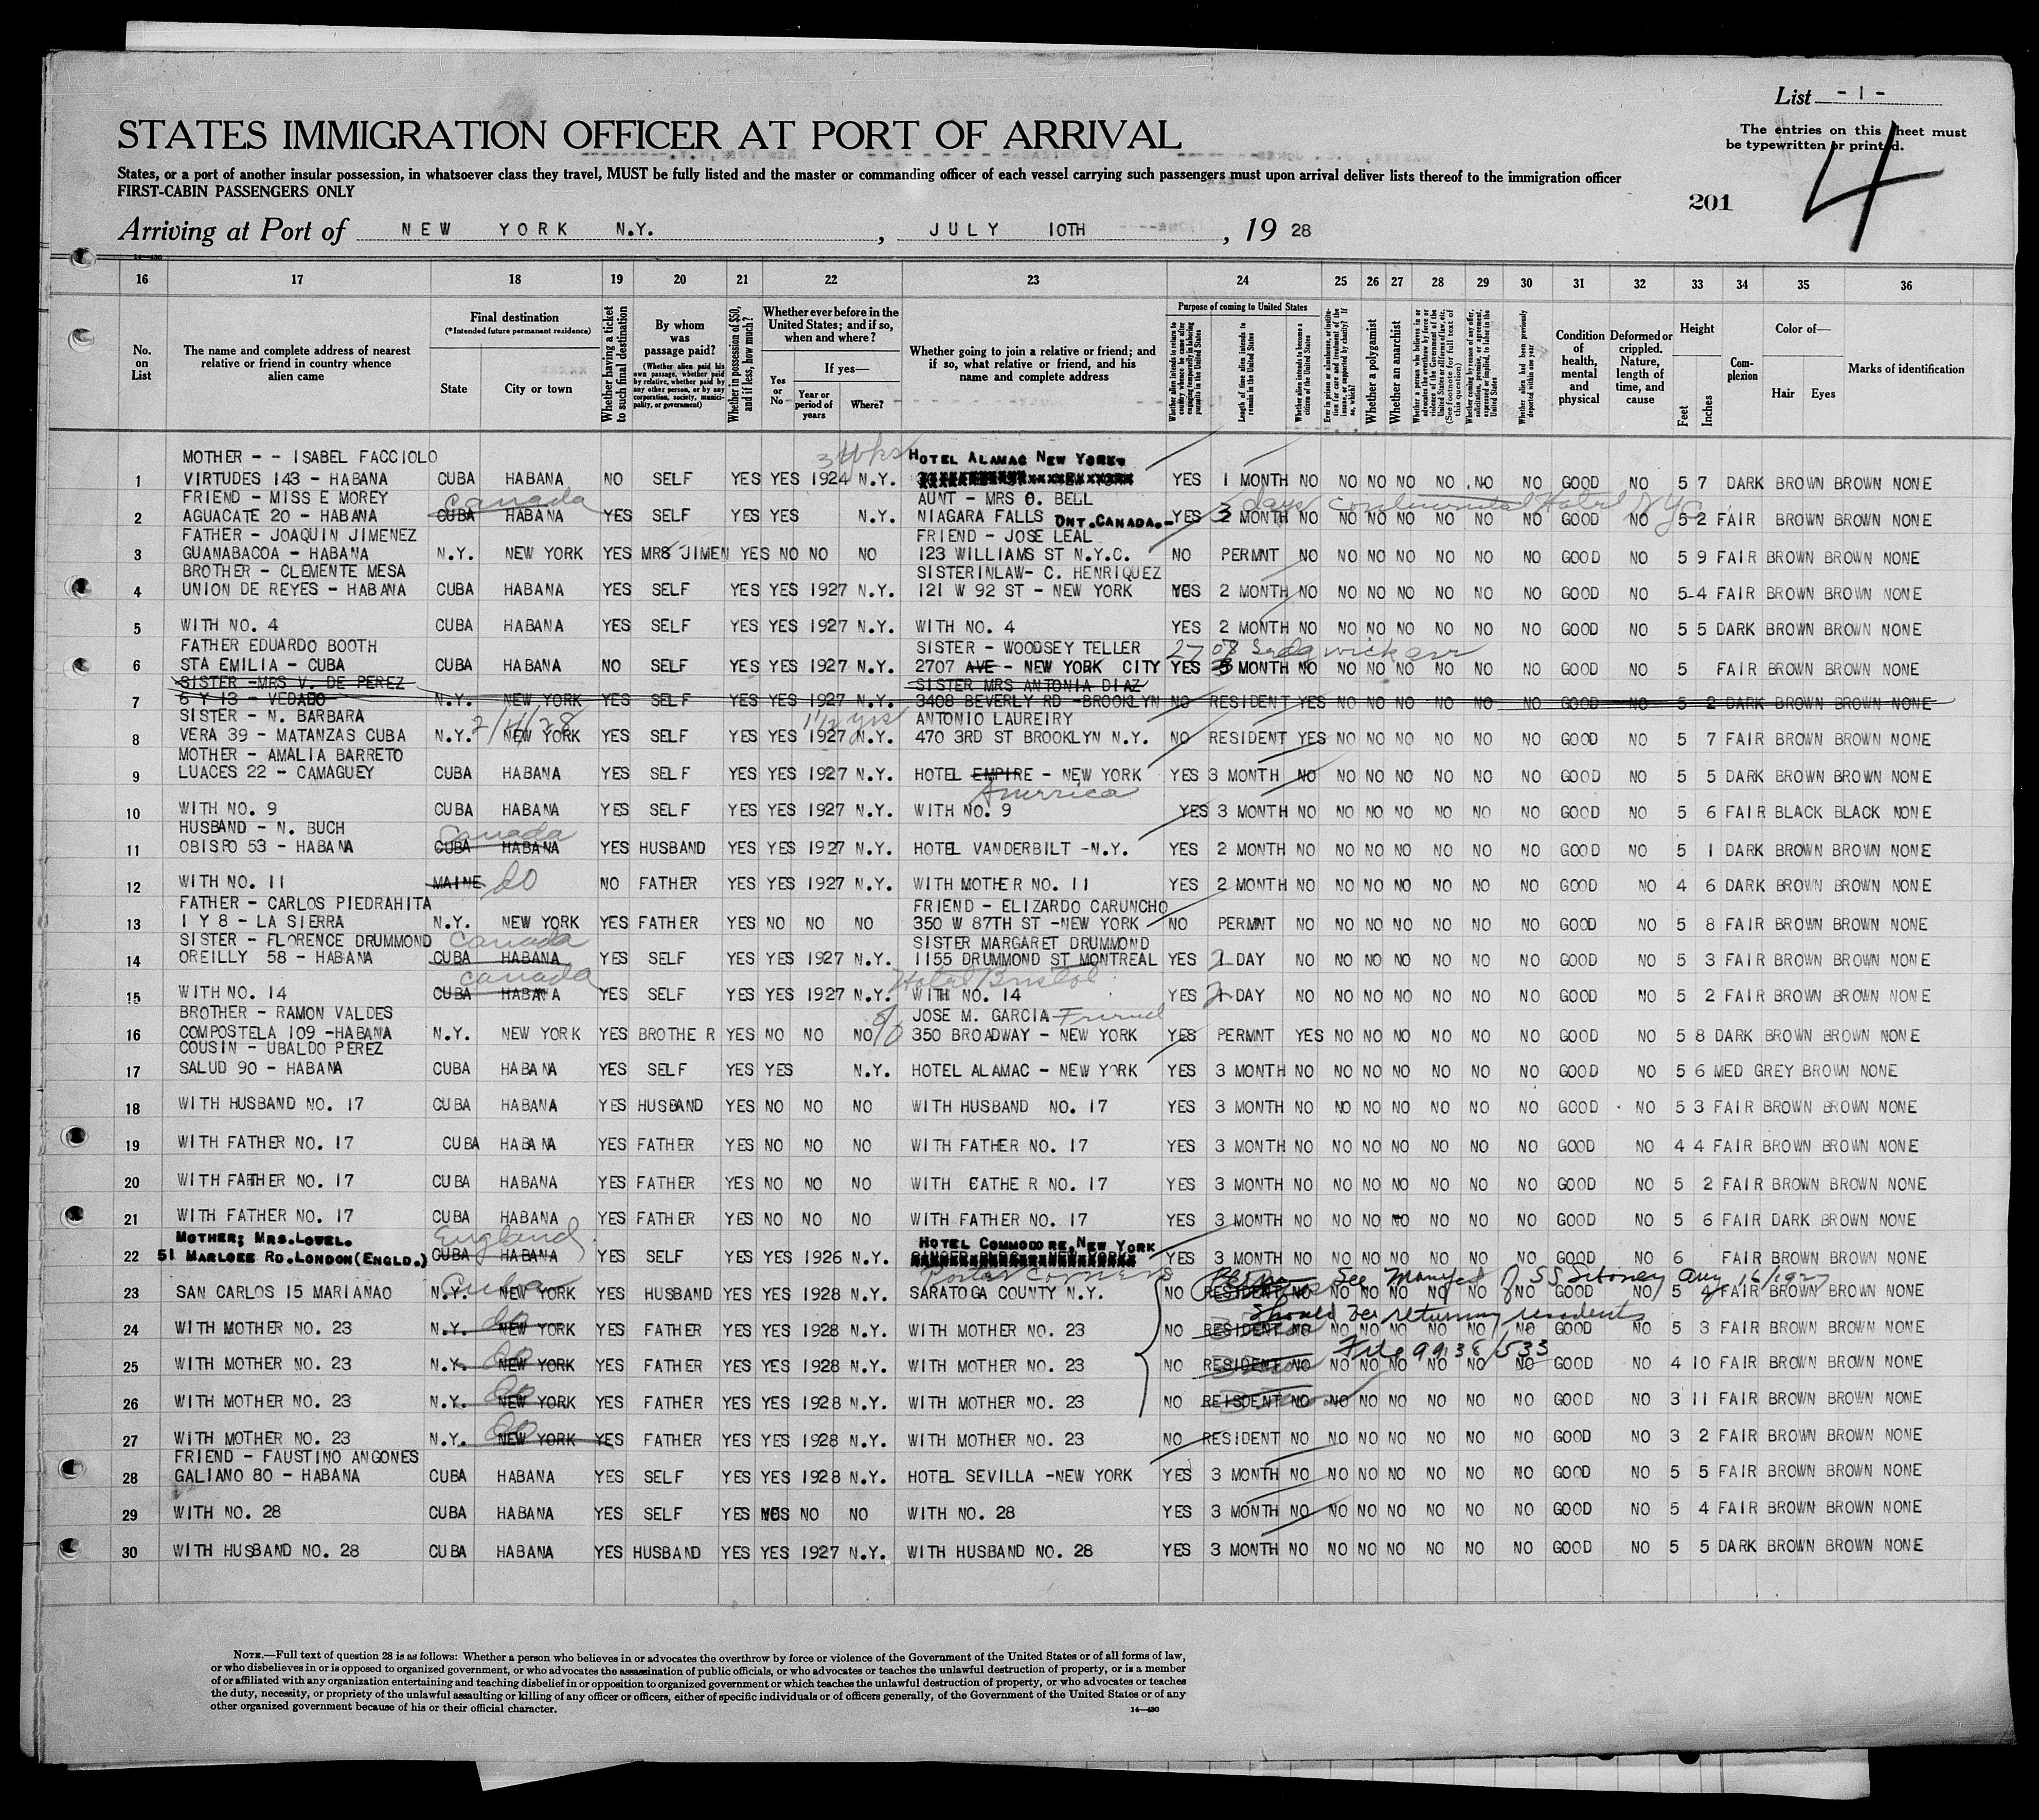 List - 1 -
STATES IMMIGRATION OFFICER AT PORT OF ARRIVAL
The entries on this sheet must
be typewritten or printed.
4
States, or a port of another insular possession, in whatsoever class they travel, MUST be fully listed and the master or commanding officer of each vessel carrying such passengers must upon arrival deliver lists thereof to the immigration officer
FIRST-CABIN PASSENGERS ONLY
201
Arriving at Port of NEW YORK N.Y. , JULY 10TH , 19 28
14—430
16 17 18 19 20 21 22 23 24 25 26 27 28 29 30 31 32 33 34 35 36
No. on List
The name and complete address of nearest relative or friend in country whence alien came
Final destination
(*Intended future permanent residence)
State
City or town
Whether having a ticket to such final destination
By whom was passage paid?
(Whether alien paid his own passage, whether paid by relative, whether paid by any other person, or by any corporation, society, municipality, or government)
Whether in possession of $50, and if less, how much?
Whether ever before in the United States; and if so, when and where?
Yes or No
If yes—
Year or period of years
Where?
Whether going to join a relative or friend; and if so, what relative or friend, and his name and complete address
Purpose of coming to United States
Whether alien intends to return to country whence he came after engaging temporarily in laboring pursuits in the United States
Length of time alien intends to remain in the United States
Whether alien intends to become a citizen of the United States
Ever in prison or almshouse, or institution for care and treatment of the insane, or supported by charity? If so, which?
Whether a polygamist
Whether an anarchist
Whether a person who believes in or advocates the overthrow by force or violence of the Government of the United States or all forms of law, etc. (See footnote for full text of this question)
Whether coming by reason of any offer, solicitation, promise, or agreement, expressed or implied, to labor in the United States
Whether alien had been previously deported within one year
Condition of health, mental and physical
Deformed or crippled. Nature, length of time, and cause
Height
Feet
Inches
Complexion
Color of—
Hair Eyes
Marks of identification
MOTHER - - ISABEL FACCIOLO HOTEL ALAMAC NEW YORK.
1 VIRTUDES 143 - HABANA CUBA HABANA NO SELF YES YES 1924 N.Y. YES 1 MONTH NO NO NO NO NO NO NO GOOD NO 5 7 DARK BROWN BROWN NONE
FRIEND - MISS E MOREY Canada AUNT - MRS O. BELL days Continental Hotel NYC
2 AGUACATE 20 - HABANA CUBA HABANA YES SELF YES YES N.Y. NIAGARA FALLS ONT.CANADA.- YES 2 MONTH NO NO NO NO NO NO NO GOOD NO 5 2 FAIR BROWN BROWN NONE
FATHER - JOAQUIN JIMENEZ FRIEND - JOSE LEAL
3 GUANABACOA - HABANA N.Y. NEW YORK YES MRS JIMEN YES NO NO NO 123 WILLIAMS ST N.Y.C. NO PERMNT NO NO NO NO NO NO NO GOOD NO 5 9 FAIR BROWN BROWN NONE
BROTHER - CLEMENTE MESA SISTERINLAW- C. HENRIQUEZ
4 UNION DE REYES - HABANA CUBA HABANA YES SELF YES YES 1927 N.Y. 121 W 92 ST - NEW YORK YES 2 MONTH NO NO NO NO NO NO NO GOOD NO 5-4 FAIR BROWN BROWN NONE
5 WITH NO. 4 CUBA HABANA YES SELF YES YES 1927 N.Y. WITH NO. 4 YES 2 MONTH NO NO NO NO NO NO NO GOOD NO 5 5 DARK BROWN BROWN NONE
FATHER EDUARDO BOOTH SISTER - WOODSEY TELLER 2707 Sedgwick
6 STA EMILIA - CUBA CUBA HABANA NO SELF YES YES 1927 N.Y. 2707 AVE - NEW YORK CITY YES 3 MONTH NO NO NO NO NO NO NO GOOD NO 5 FAIR BROWN BROWN NONE
SISTER -MRS V. DE PEREZ SISTER MRS ANTONIA DIAZ
7 6 Y 13 - VEDADO N.Y. NEW YORK YES SELF YES YES 1927 N.Y. 3408 BEVERLY RD -BROOKLYN NO RESIDENT YES NO NO NO NO NO NO GOOD NO 5 2 DARK BROWN BROWN NONE
SISTER - N. BARBARA 1 1/2 yrs ANTONIO LAUREIRY
8 VERA 39 - MATANZAS CUBA N.Y. NEW YORK YES SELF YES YES 1927 N.Y. 470 3RD ST BROOKLYN N.Y. NO RESIDENT YES NO NO NO NO NO NO GOOD NO 5 7 FAIR BROWN BROWN NONE
MOTHER - AMALIA BARRETO
9 LUACES 22 - CAMAGUEY CUBA HABANA YES SELF YES YES 1927 N.Y. HOTEL EMPIRE - NEW YORK YES 3 MONTH NO NO NO NO NO NO NO GOOD NO 5 5 DARK BROWN BROWN NONE
America
10 WITH NO. 9 CUBA HABANA YES SELF YES YES 1927 N.Y. WITH NO. 9 YES 3 MONTH NO NO NO NO NO NO NO GOOD NO 5 6 FAIR BLACK BLACK NONE
HUSBAND - N. BUCH Canada
11 OBISPO 53 - HABANA CUBA HABANA YES HUSBAND YES YES 1927 N.Y. HOTEL VANDERBILT -N.Y. YES 2 MONTH NO NO NO NO NO NO NO GOOD NO 5 1 DARK BROWN BROWN NONE
12 WITH NO. 11 MAINE do NO FATHER YES YES 1927 N.Y. WITH MOTHER NO. 11 YES 2 MONTH NO NO NO NO NO NO NO GOOD NO 4 6 DARK BROWN BROWN NONE
FATHER - CARLOS PIEDRAHITA FRIEND - ELIZARDO CARUNCHO
13 1 Y 8 - LA SIERRA N.Y. NEW YORK YES FATHER YES NO NO NO 350 W 87TH ST -NEW YORK NO PERMNT NO NO NO NO NO NO NO GOOD NO 5 8 FAIR BROWN BROWN NONE
SISTER - FLORENCE DRUMMOND Canada SISTER MARGARET DRUMMOND
14 OREILLY 58 - HABANA CUBA HABANA YES SELF YES YES 1927 N.Y. 1155 DRUMMOND ST MONTREAL YES 2 DAY NO NO NO NO NO NO NO GOOD NO 5 3 FAIR BROWN BROWN NONE
Canada Hotel Bristol
15 WITH NO. 14 CUBA HABANA YES SELF YES YES 1927 N.Y. WITH NO. 14 YES 2 DAY NO NO NO NO NO NO NO GOOD NO 5 2 FAIR BROWN BROWN NONE
BROTHER - RAMON VALDES JOSE M. GARCIA Friend
16 COMPOSTELA 109 -HABANA N.Y. NEW YORK YES BROTHE R YES NO NO NO c/o 350 BROADWAY - NEW YORK YES PERMNT YES NO NO NO NO NO NO GOOD NO 5 8 DARK BROWN BROWN NONE
COUSIN - UBALDO PEREZ
17 SALUD 90 - HABANA CUBA HABANA YES SELF YES YES N.Y. HOTEL ALAMAC - NEW YORK YES 3 MONTH NO NO NO NO NO NO NO GOOD NO 5 6 MED GREY BROWN NONE
18 WITH HUSBAND NO. 17 CUBA HABANA YES HUSBAND YES NO NO NO WITH HUSBAND NO. 17 YES 3 MONTH NO NO NO NO NO NO NO GOOD NO 5 3 FAIR BROWN BROWN NONE
19 WITH FATHER NO. 17 CUBA HABANA YES FATHER YES NO NO NO WITH FATHER NO. 17 YES 3 MONTH NO NO NO NO NO NO NO GOOD NO 4 4 FAIR BROWN BROWN NONE
20 WITH FATHER NO. 17 CUBA HABANA YES FATHER YES NO NO NO WITH CATHE R NO. 17 YES 3 MONTH NO NO NO NO NO NO NO GOOD NO 5 2 FAIR BROWN BROWN NONE
21 WITH FATHER NO. 17 CUBA HABANA YES FATHER YES NO NO NO WITH FATHER NO. 17 YES 3 MONTH NO NO NO NO NO NO NO GOOD NO 5 6 FAIR DARK BROWN NONE
MOTHER; MRS.LOWEL. England HOTEL COMMODORE, NEW YORK
22 51 MARLOEE RD.LONDON(ENGLD.) CUBA HABANA YES SELF YES YES 1926 N.Y. YES 3 MONTH NO NO NO NO NO NO NO GOOD NO 6 FAIR BROWN BROWN NONE
Cuba Porter Corners See Manifest of SS Siboney Aug 16/1927
23 SAN CARLOS 15 MARIANAO N.Y. NEW YORK YES HUSBAND YES YES 1928 N.Y. SARATOGA COUNTY N.Y. NO RESIDENT NO NO NO NO NO NO NO GOOD NO 5 4 FAIR BROWN BROWN NONE
do Should be returning residents
24 WITH MOTHER NO. 23 N.Y. NEW YORK YES FATHER YES YES 1928 N.Y. WITH MOTHER NO. 23 NO RESIDENT NO NO NO NO NO NO NO GOOD NO 5 3 FAIR BROWN BROWN NONE
do File 99138/533
25 WITH MOTHER NO. 23 N.Y. NEW YORK YES FATHER YES YES 1928 N.Y. WITH MOTHER NO. 23 NO RESIDENT NO NO NO NO NO NO NO GOOD NO 4 10 FAIR BROWN BROWN NONE
do
26 WITH MOTHER NO. 23 N.Y. NEW YORK YES FATHER YES YES 1928 N.Y. WITH MOTHER NO. 23 NO REISDENT NO NO NO NO NO NO NO GOOD NO 3 11 FAIR BROWN BROWN NONE
do
27 WITH MOTHER NO. 23 N.Y. NEW YORK YES FATHER YES YES 1928 N.Y. WITH MOTHER NO. 23 NO RESIDENT NO NO NO NO NO NO NO GOOD NO 3 2 FAIR BROWN BROWN NONE
FRIEND - FAUSTINO ANGONES
28 GALIANO 80 - HABANA CUBA HABANA YES SELF YES YES 1928 N.Y. HOTEL SEVILLA -NEW YORK YES 3 MONTH NO NO NO NO NO NO NO GOOD NO 5 5 FAIR BROWN BROWN NONE
29 WITH NO. 28 CUBA HABANA YES SELF YES NO NO WITH NO. 28 YES 3 MONTH NO NO NO NO NO NO NO GOOD NO 5 4 FAIR BROWN BROWN NONE
30 WITH HUSBAND NO. 28 CUBA HABANA YES HUSBAND YES YES 1927 N.Y. WITH HUSBAND NO. 28 YES 3 MONTH NO NO NO NO NO NO NO GOOD NO 5 5 DARK BROWN BROWN NONE
NOTE.—Full text of question 28 is as follows: Whether a person who believes in or advocates the overthrow by force or violence of the Government of the United States or of all forms of law,
or who disbelieves in or is opposed to organized government, or who advocates the assassination of public officials, or who advocates or teaches the unlawful destruction of property, or is a member
of or affiliated with any organization entertaining and teaching disbelief in or opposition to organized government or which teaches the unlawful destruction of property, or who advocates or teaches
the duty, necessity, or propriety of the unlawful assaulting or killing of any officer or officers, either of specific individuals or of officers generally, of the Government of the United States or of any
other organized government because of his or their official character.
14—430